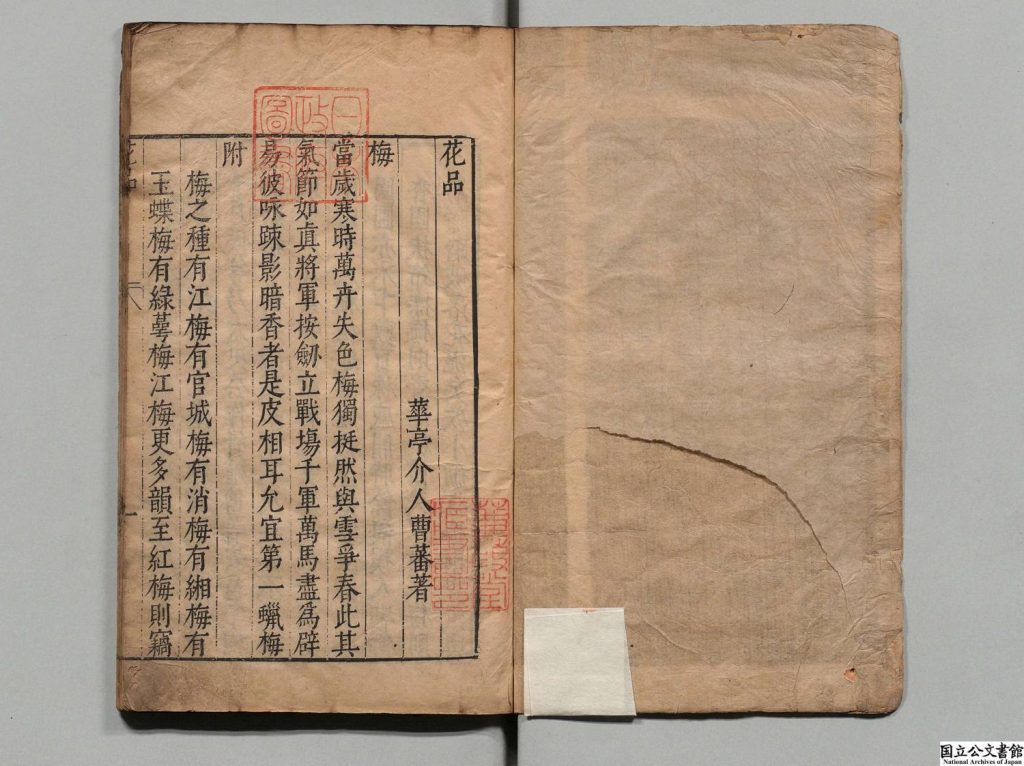 花品
華亭介人曹蕃著
梅
當歲寒時萬卉失色梅獨挺然與雪爭春此其
氣節如眞將軍按劒立戰塲千軍萬馬盡爲辟
易彼咏踈影暗香者是皮相耳允宜第一蠟梅
附
梅之種有江梅有官城梅有消梅有緗梅有
玉蝶梅有綠蕚梅江梅更多韻至紅梅則竊
花品
一
日本政府圖書
国立公文書館
National Archives of Japan